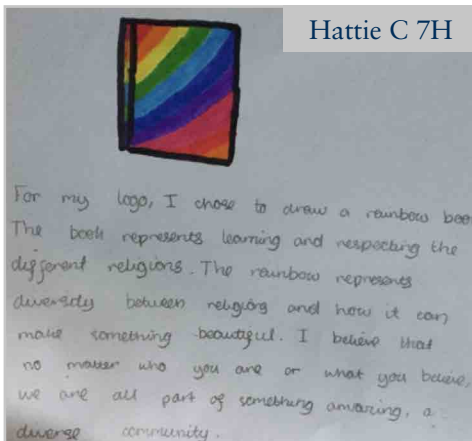 Hattie C 7H
For my logo, I chose to draw a rainbow boo
The book represents learning and respecting the
different religions. The rainbow represents
diversity between religions and how it can
make something beautiful. I believe that
no matter who you are or what you believe,
we are all part of something amazing, a
diverse community.